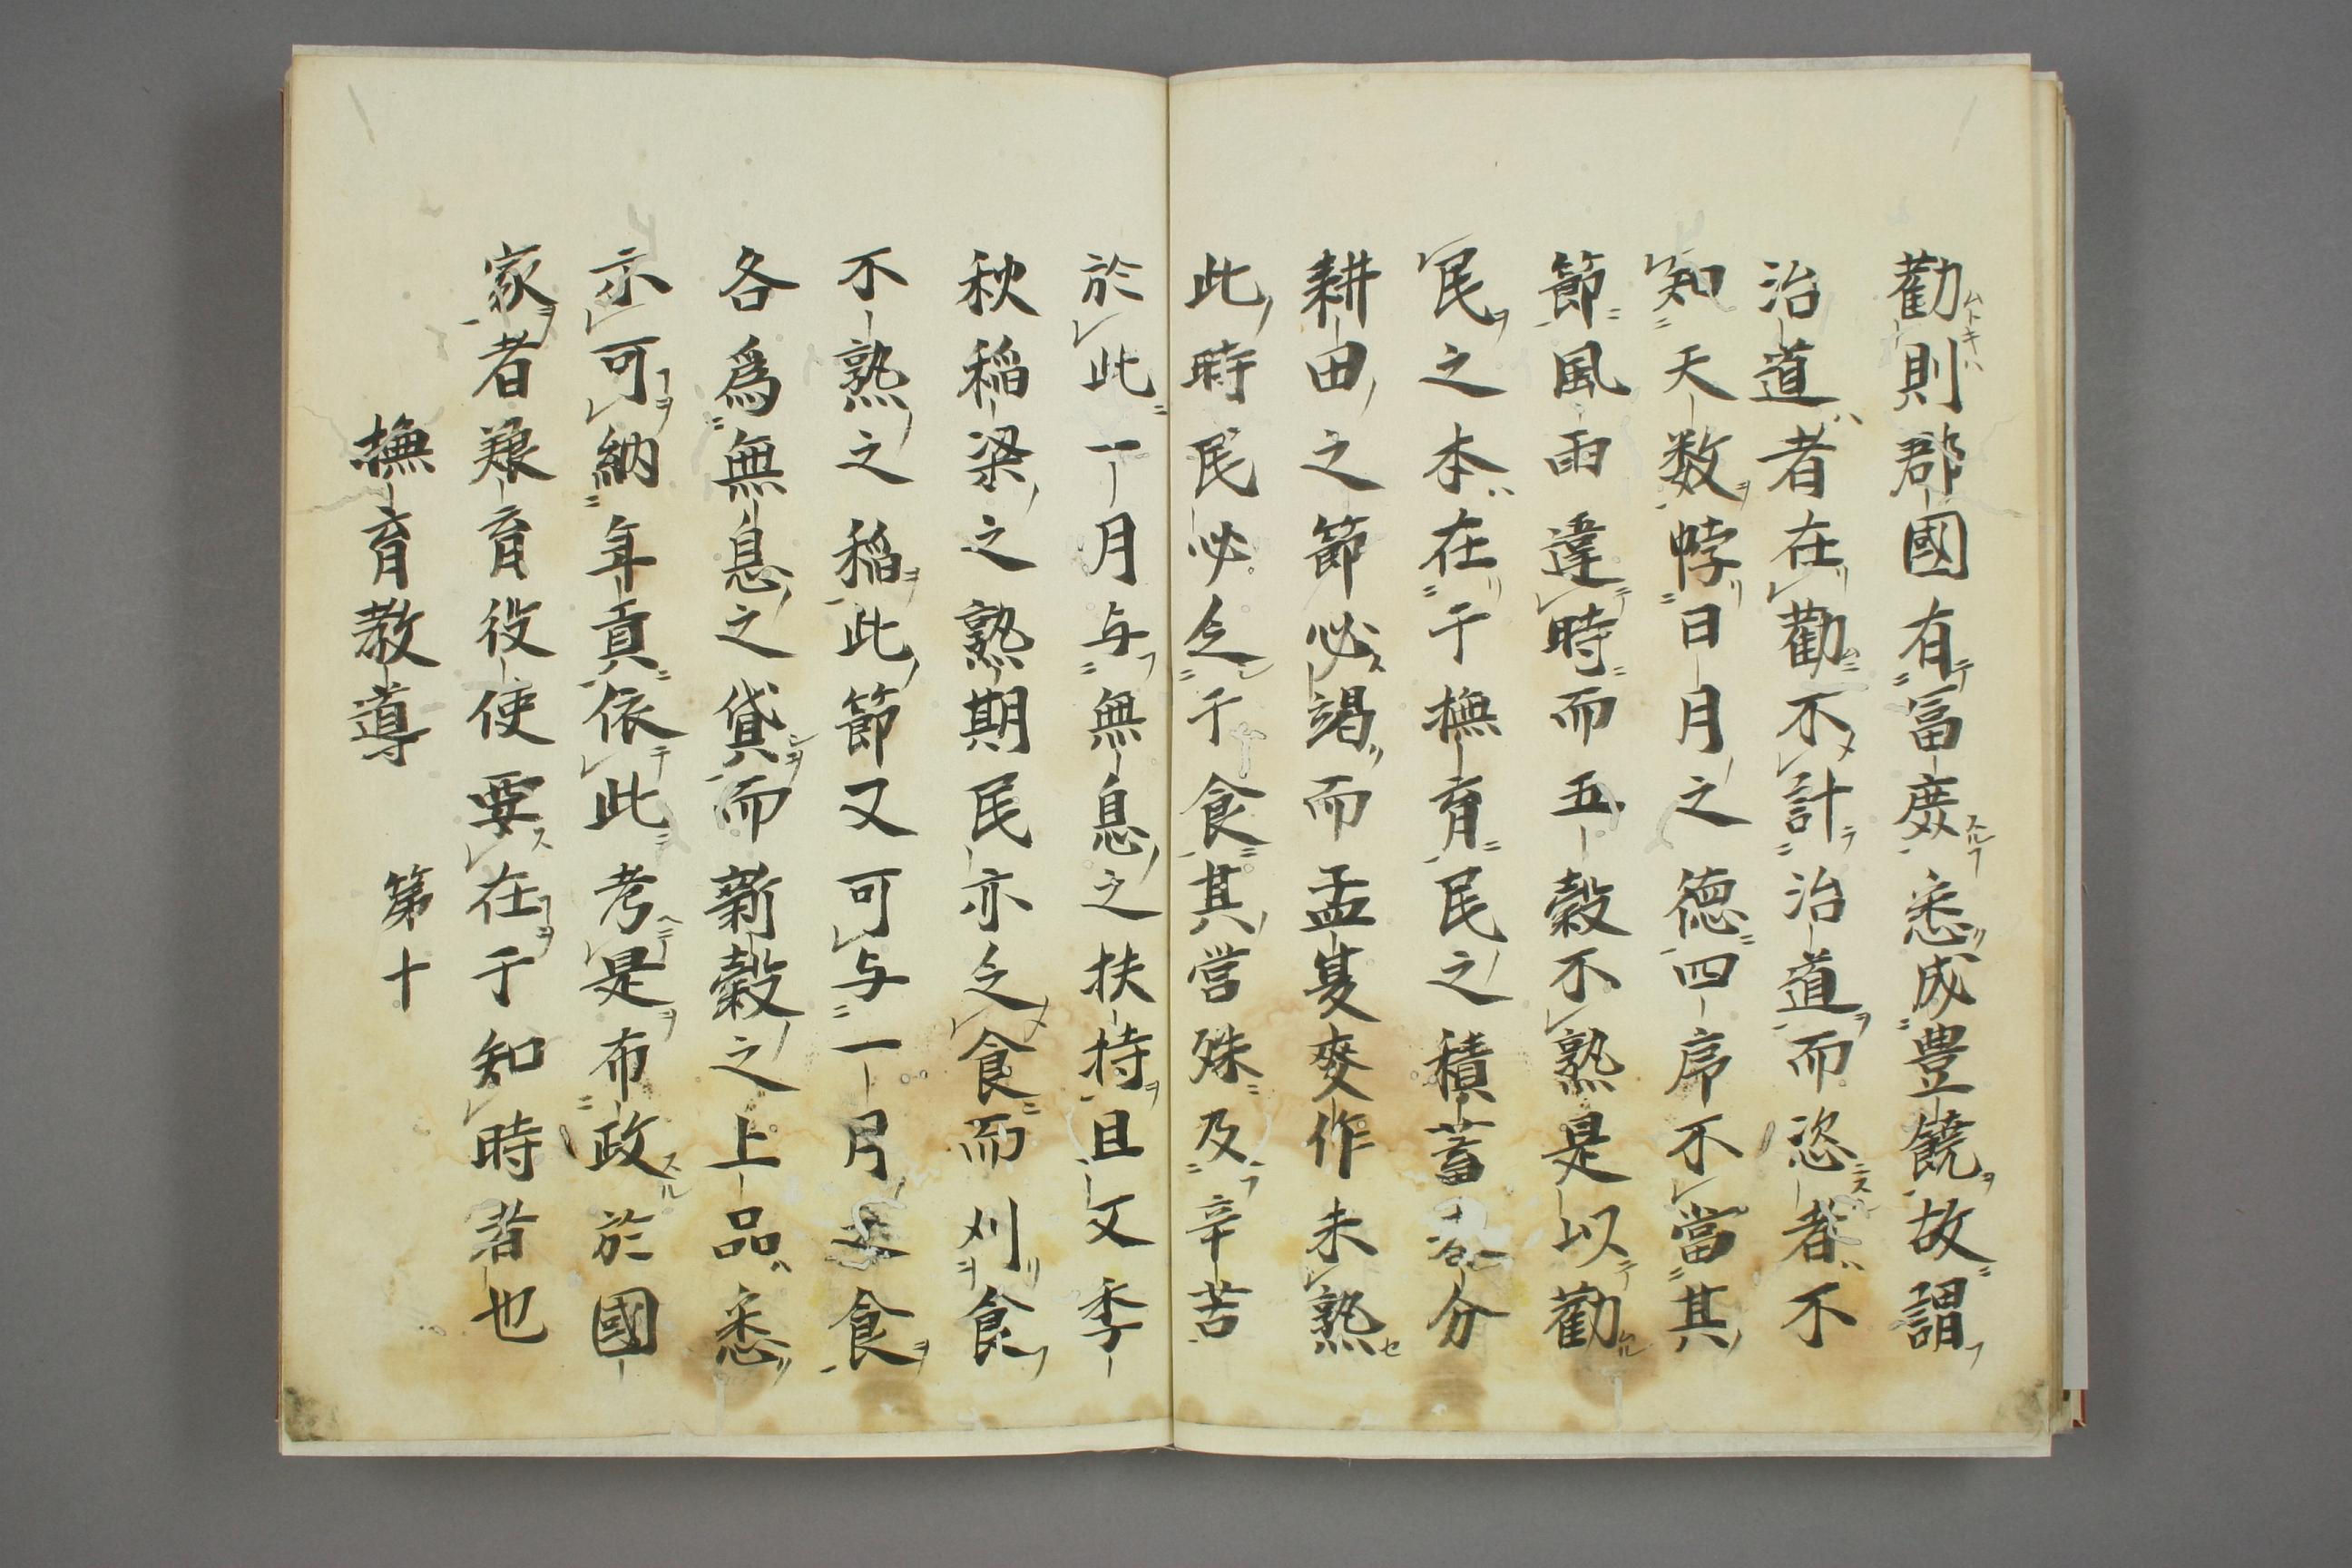 勸則郡國有冨廣悉成豊饒故謂
治道者在勸不計治道而恣者不
知天数悖日月之德四序不當其
節風雨違時而五穀不熟是以勸
民之本在于撫育民之積蓄 分
耕田之節必竭而孟夏麥作未熟
此時民必乏于食其営殊及辛苦
於此一月与無息之扶持且又季
秋稲梁之熟期民亦乏食而刈食
不熟之稲此節又可与一月之食
各爲無息之貸而新穀之上品悉
示可納年貢依此考是布政於國
家者養育役使要在于知時者也
撫育教導　第十